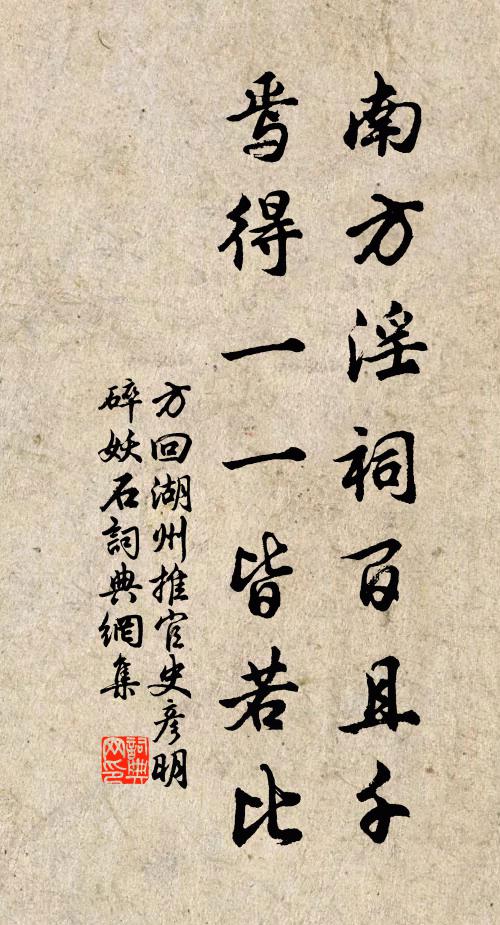 南方淫祠百且千
焉得一一皆若比
方回湖州推官史彦明
碎妖石詞典網集
詞典網印